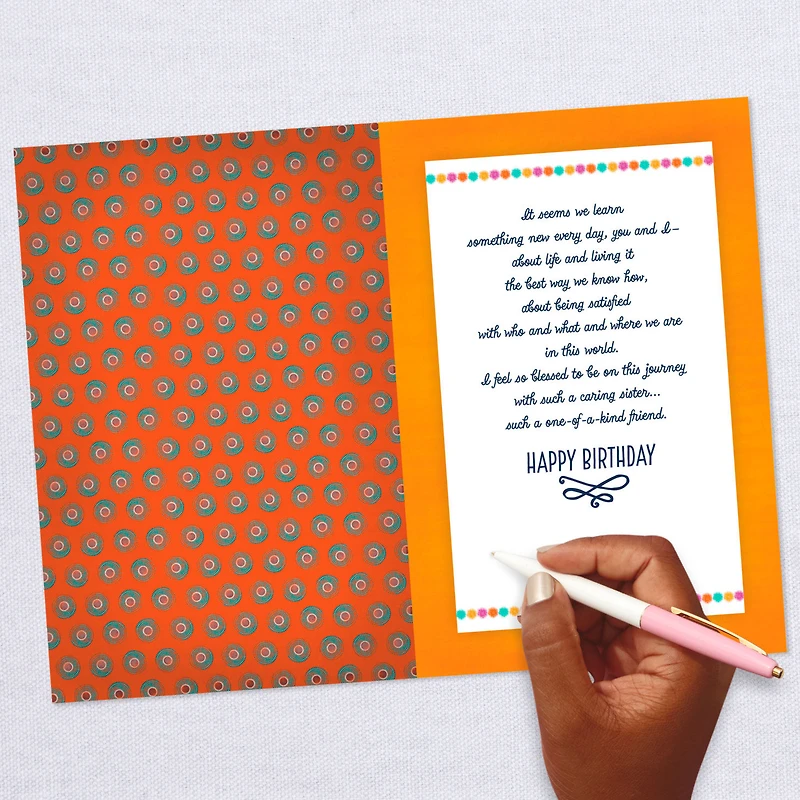 It seems we learn
something new every day, you and I–
about life and living it
the best way we know how,
about being satisfied
with who and what and where we are
in this world.
I feel so blessed to be on this journey
with such a caring sister...
such a one-of-a-kind friend.
HAPPY BIRTHDAY